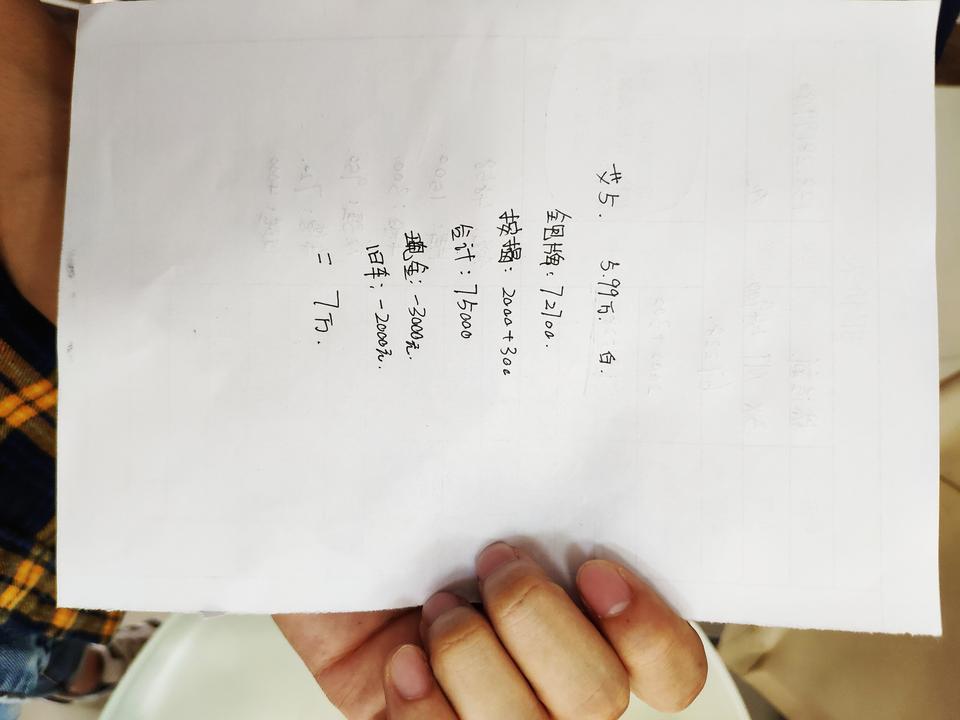 艾5. 5.99万. 白.
全包牌: 72700.
按揭: 2000+300
合计: 75000
现金: -3000元.
旧车: -2000元.
= 7万.